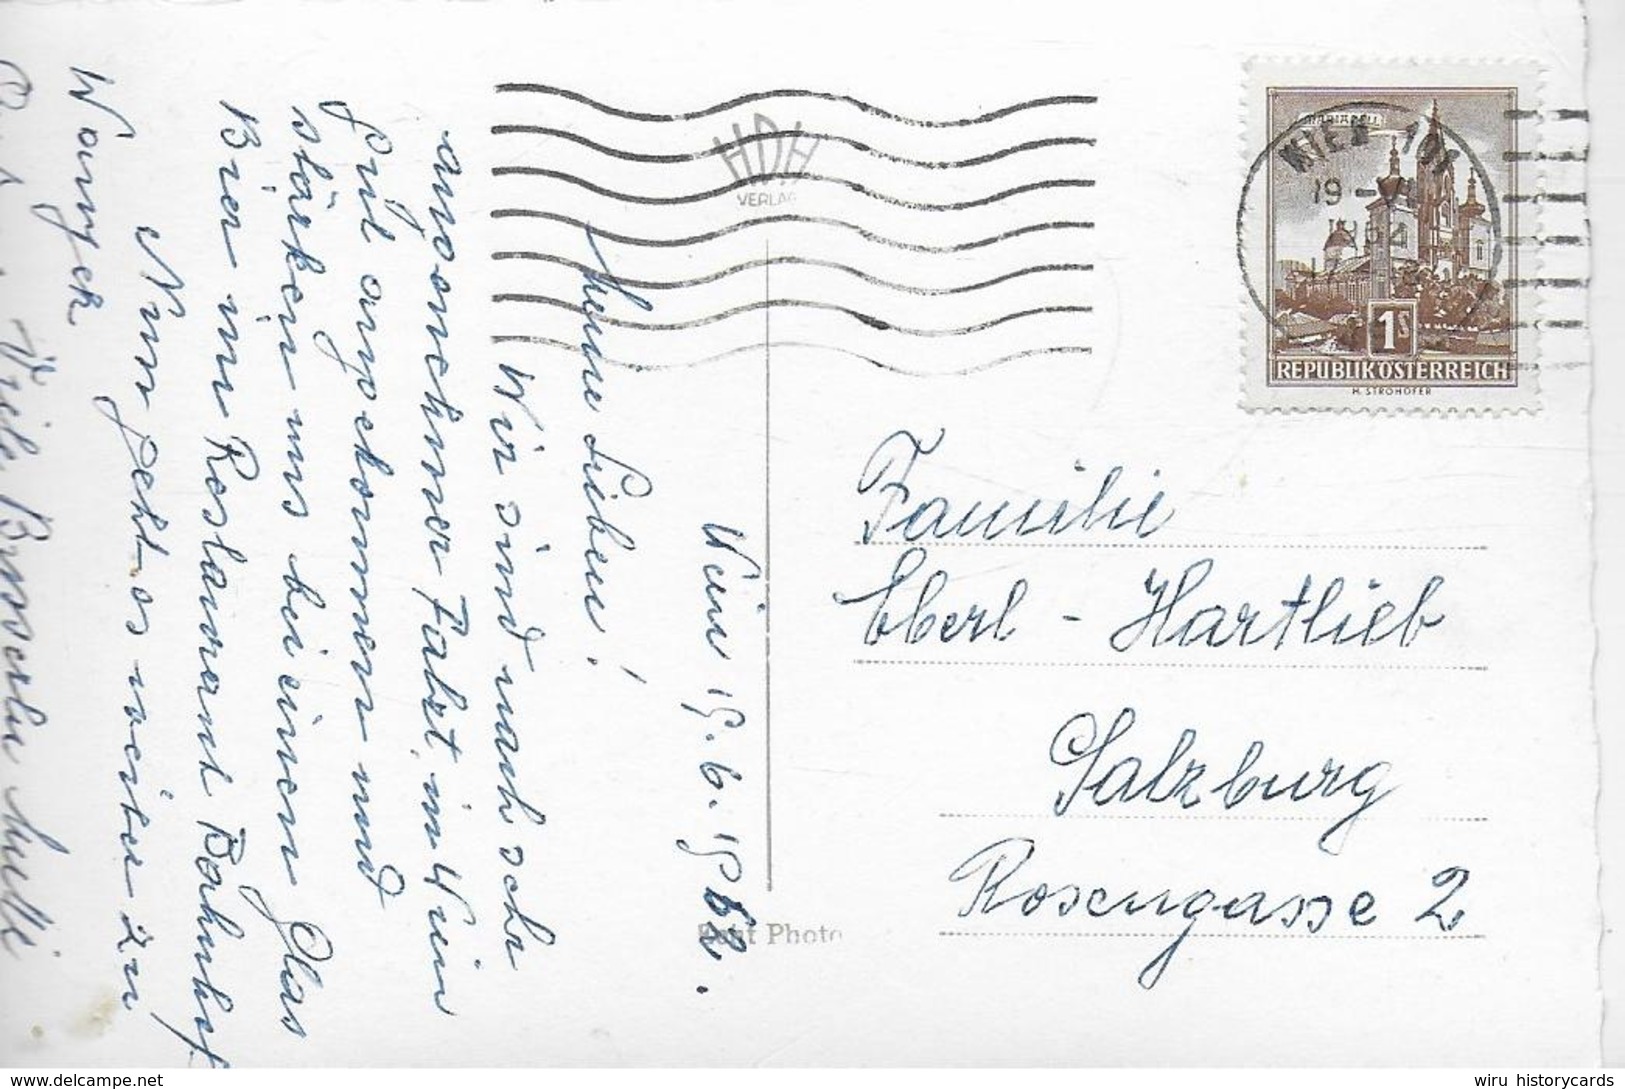 HDH
VERLAG
MARIAZELL
WIEN 101
19 -V
1S
REPUBLIK ÖSTERREICH
H. STROHOFER
Wien 19. 6. 1962.
Meine Lieben!
Wir sind nach sehr
angenehmer Fahrt in Wien
gut angekommen und
stärken uns bei einem Glas
Bier im Restaurant Bahnhof
Nun geht es weiter zu
Viele Busserln Mutti
Familie
Eberl - Hartlieb
Salzburg
Rosengasse 2
Echt Photo
wiru historycards